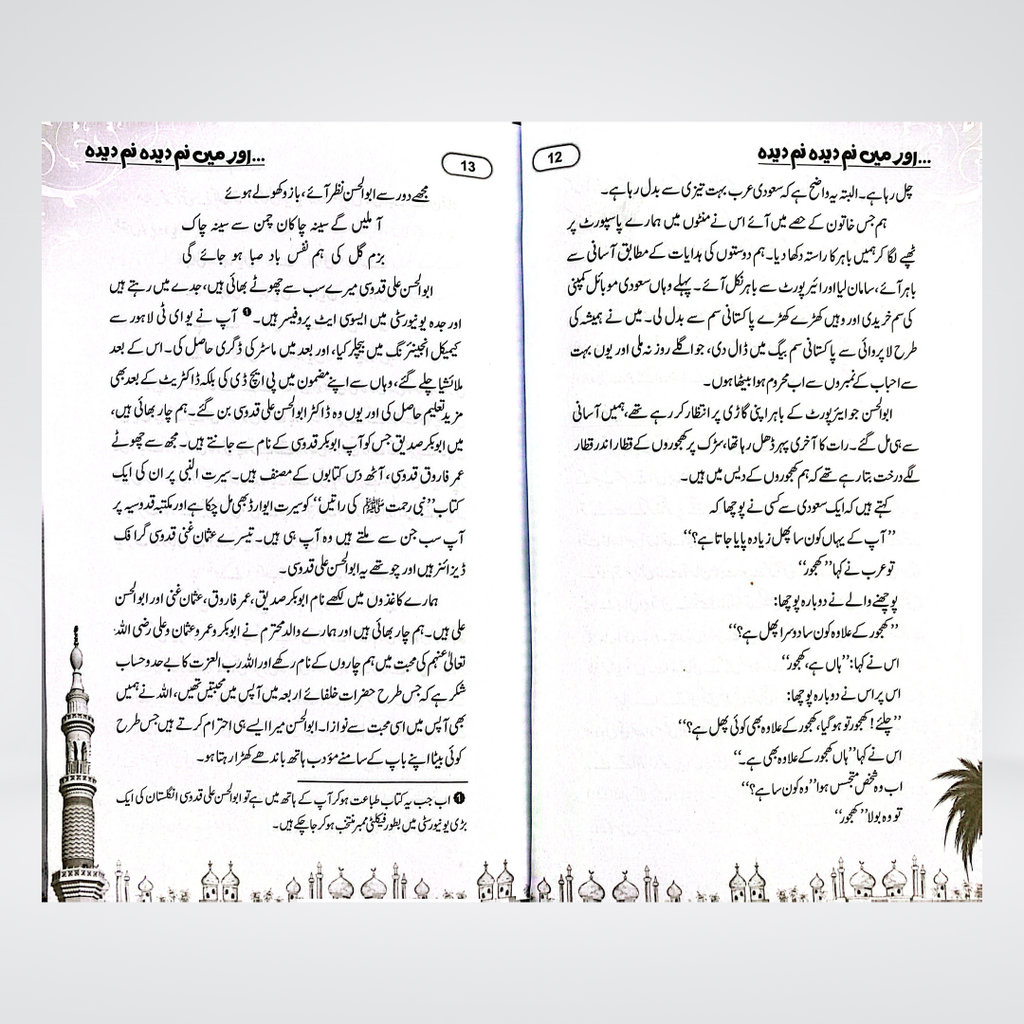 ...اور میں نم دیدہ نم دیدہ
12
چل رہا ہے۔ البتہ یہ واضح ہے کہ سعودی عرب بہت تیزی سے بدل رہا ہے۔
ہم جس خاتون کے حصے میں آئے اس نے منٹوں میں ہمارے پاسپورٹ پر
ٹھپے لگا کر ہمیں باہر کا راستہ دکھا دیا۔ ہم دوستوں کی ہدایات کے مطابق آسانی سے
باہر آئے، سامان لیا اور ائیر پورٹ سے باہر نکل آئے۔ پہلے وہاں سعودی موبائل کمپنی
کی سم خریدی اور وہیں کھڑے کھڑے پاکستانی سم سے بدل لی۔ میں نے ہمیشہ کی
طرح لاپروائی سے پاکستانی سم بیگ میں ڈال دی، جو اگلے روز نہ ملی اور یوں بہت
سے احباب کے نمبروں سے اب محروم ہوا بیٹھا ہوں۔
ابوالحسن جو ایئرپورٹ کے باہر اپنی گاڑی پر انتظار کر رہے تھے، ہمیں آسانی
سے ہی مل گئے۔ رات کا آخری پہر ڈھل رہا تھا، سڑک پر کھجوروں کے قطار اندر قطار
لگے درخت بتا رہے تھے کہ ہم کھجوروں کے دیس میں ہیں۔
کہتے ہیں کہ ایک سعودی سے کسی نے پوچھا کہ
”آپ کے یہاں کون سا پھل زیادہ پایا جاتا ہے؟“
تو عرب نے کہا ”کھجور“
پوچھنے والے نے دوبارہ پوچھا:
”کھجور کے علاوہ کون سا دوسرا پھل ہے؟“
اس نے کہا: ”ہاں ہے، کھجور“
اس پر اس نے دوبارہ پوچھا:
”چلئے! کھجور تو ہو گیا، کھجور کے علاوہ بھی کوئی پھل ہے؟“
اس نے کہا ”ہاں کھجور کے علاوہ بھی ہے۔“
اب وہ شخص متجسس ہوا ”وہ کون سا ہے؟“
تو وہ بولا ”کھجور“
...اور میں نم دیدہ نم دیدہ
13
مجھے دور سے ابوالحسن نظر آئے، بازو کھولے ہوئے
آ ملیں گے سینہ چاکان چمن سے سینہ چاک
بزم گل کی ہم نفس باد صبا ہو جائے گی
ابوالحسن علی قدوسی میرے سب سے چھوٹے بھائی ہیں، جدے میں رہتے ہیں
اور جدہ یونیورسٹی میں ایسوسی ایٹ پروفیسر ہیں۔❶ آپ نے یو ای ٹی لاہور سے
کیمیکل انجینئرنگ میں بیچلر کیا، اور بعد میں ماسٹر کی ڈگری حاصل کی۔ اس کے بعد
ملائشیا چلے گئے، وہاں سے اپنے مضمون میں پی ایچ ڈی کی بلکہ ڈاکٹریٹ کے بعد بھی
مزید تعلیم حاصل کی اور یوں وہ ڈاکٹر ابوالحسن علی قدوسی بن گئے۔ ہم چار بھائی ہیں،
میں ابوبکر صدیق جس کو آپ ابوبکر قدوسی کے نام سے جانتے ہیں۔ مجھ سے چھوٹے
عمر فاروق قدوسی، آٹھ دس کتابوں کے مصنف ہیں۔ سیرت النبی پر ان کی ایک
کتاب ”نبی رحمت ﷺ کی راتیں“ کو سیرت ایوارڈ بھی مل چکا ہے اور مکتبہ قدوسیہ پر
آپ سب جن سے ملتے ہیں وہ آپ ہی ہیں۔ تیسرے عثمان غنی قدوسی گرافک
ڈیزائنر ہیں اور چوتھے یہ ابوالحسن علی قدوسی۔
ہمارے کاغذوں میں لکھے نام ابوبکر صدیق، عمر فاروق، عثمان غنی اور ابوالحسن
علی ہیں۔ ہم چار بھائی ہیں اور ہمارے والد محترم نے ابوبکر و عمر و عثمان و علی رضی اللہ
تعالیٰ عنہم کی محبت میں ہم چاروں کے نام رکھے اور اللہ رب العزت کا بے حد و حساب
شکر ہے کہ جس طرح حضرات خلفائے اربعہ میں آپس میں محبتیں تھیں، اللہ نے ہمیں
بھی آپس میں اسی محبت سے نوازا۔ ابوالحسن میرا ایسے ہی احترام کرتے ہیں جس طرح
کوئی بیٹا اپنے باپ کے سامنے مؤدب ہاتھ باندھے کھڑا رہتا ہو۔
❶ اب جب یہ کتاب طباعت ہو کر آپ کے ہاتھ میں ہے تو ابوالحسن علی قدوسی انگلستان کی ایک
بڑی یونیورسٹی میں بطور فیکلٹی ممبر منتخب ہو کر جا چکے ہیں۔